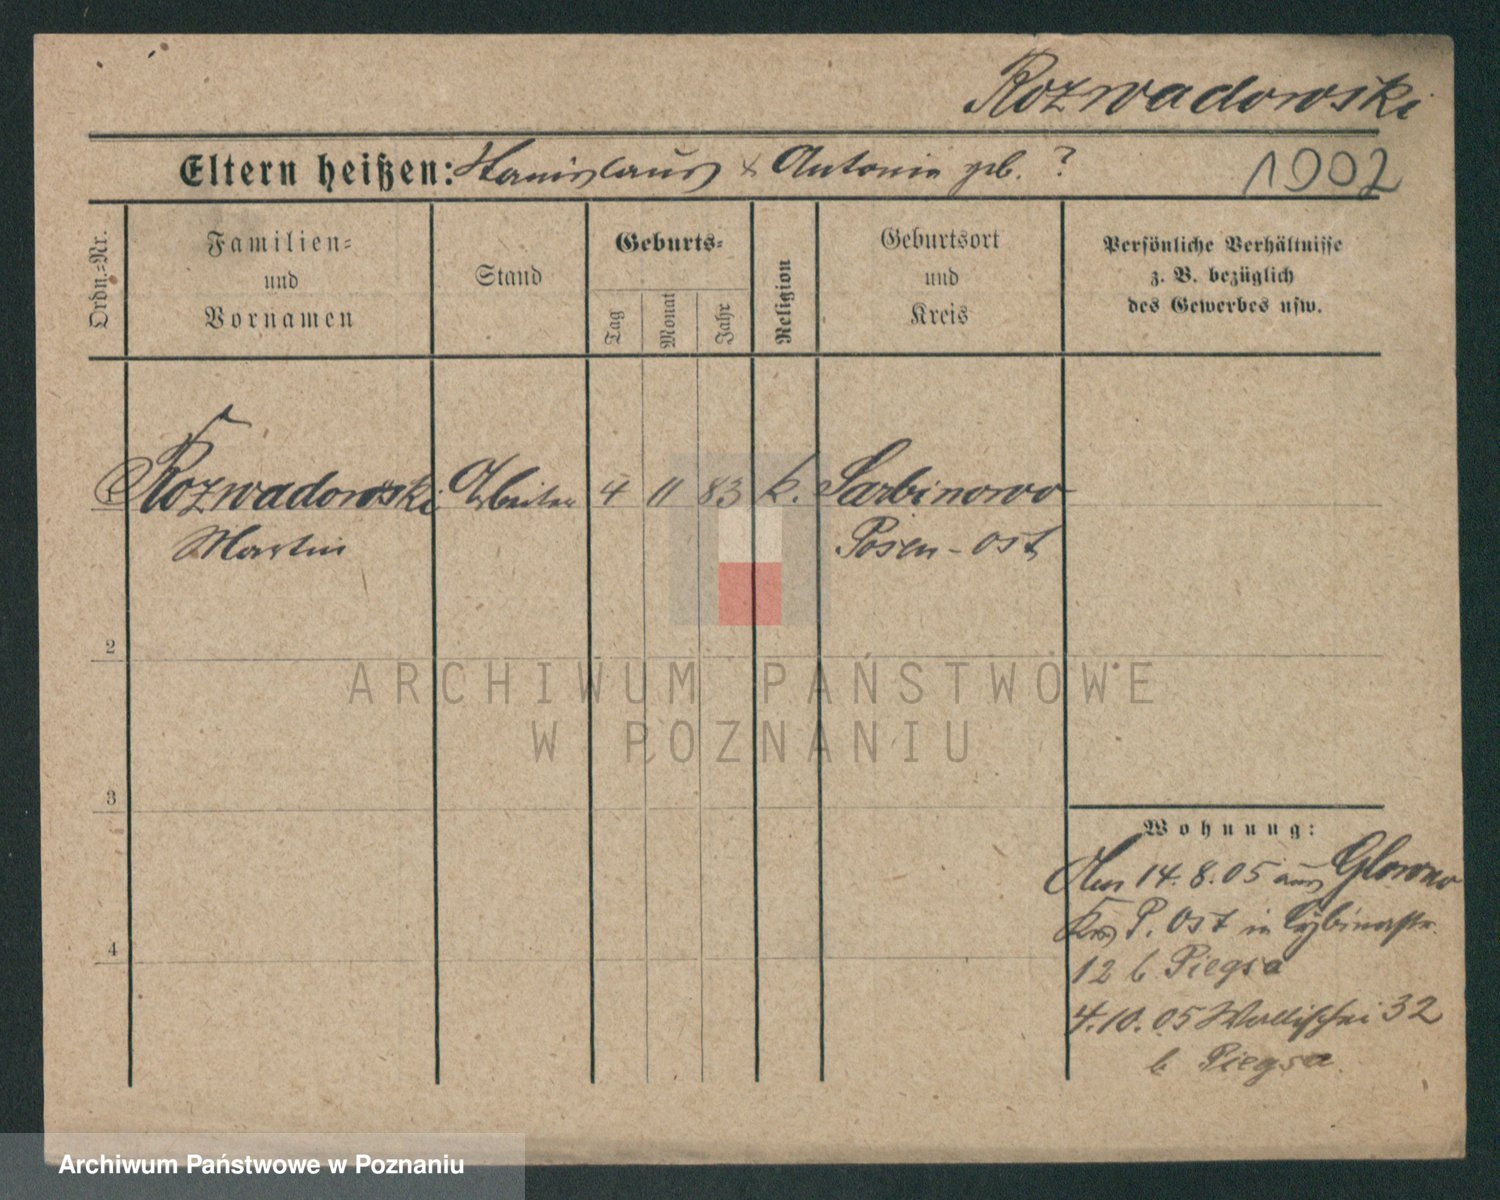 Rozwadowski
Eltern heißen: Stanislaus & Antonie geb. ?
1902
Ordn.-Nr.
Familien-
und
Vornamen
Stand
Geburts-
Tag
Monat
Jahr
Religion
Geburtsort
und
Kreis
Persönliche Verhältnisse
z. B. bezüglich
des Gewerbes usw.
Rozwadowski Arbeiter 4 11 83 k. Sarbinowo
Martin Posen-Ost
2
ARCHIWUM PAŃSTWOWE
W POZNANIU
3
Wohnung:
14.8.05 aus Glowno
4
Krs P. Ost in Cybinastr.
12 b Piegsa
4.10.05 Wallischei 32
b Piegsa.
Archiwum Państwowe w Poznaniu